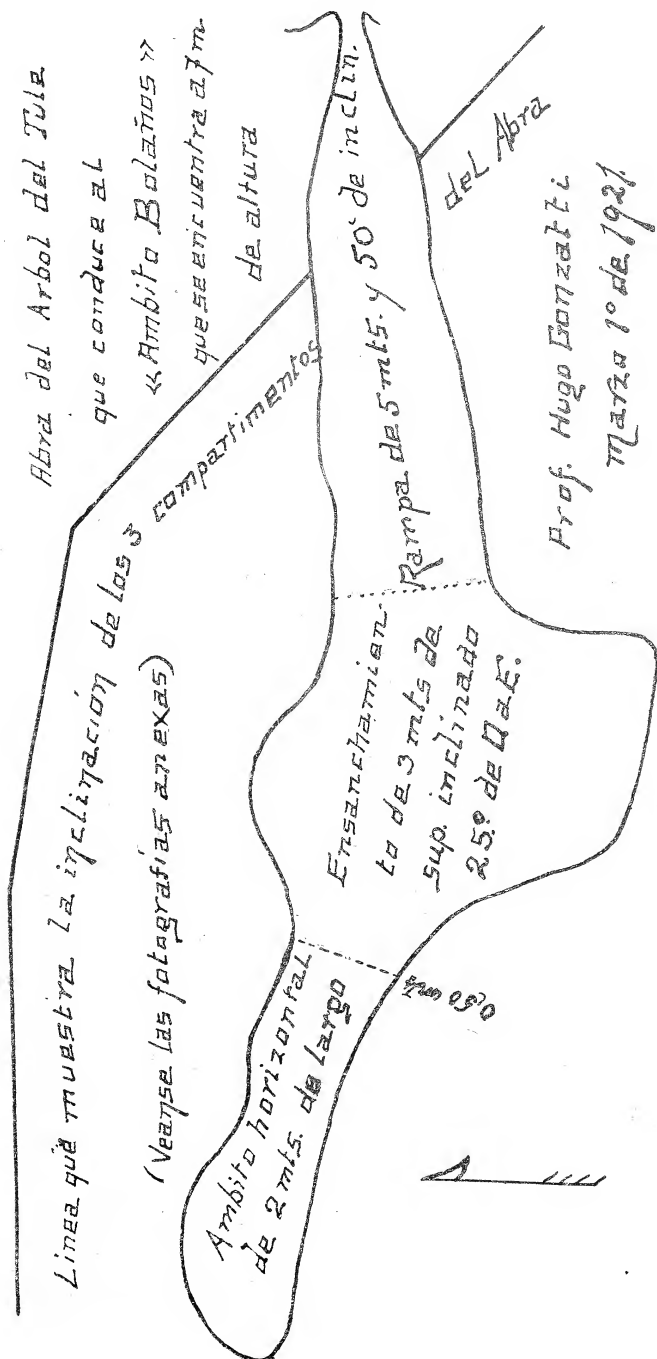 Abra del Arbol del Tule
que conduce al
«Ambito Bolaños»
que se encuentra a 7 m.
de altura
Linea que muestra la inclinación de los 3 compartimentos
(Veanse las fotografías anexas)
Ambito horizontal
de 2 mts. de largo
0,50 mts
Ensanchamien-
to de 3 mts de
sup. inclinado
25.° de O a E.
Rampa de 5 mts. y 50° de inclin.
del Abra
Prof. Hugo Gonzatti
Marzo 1° de 1921.